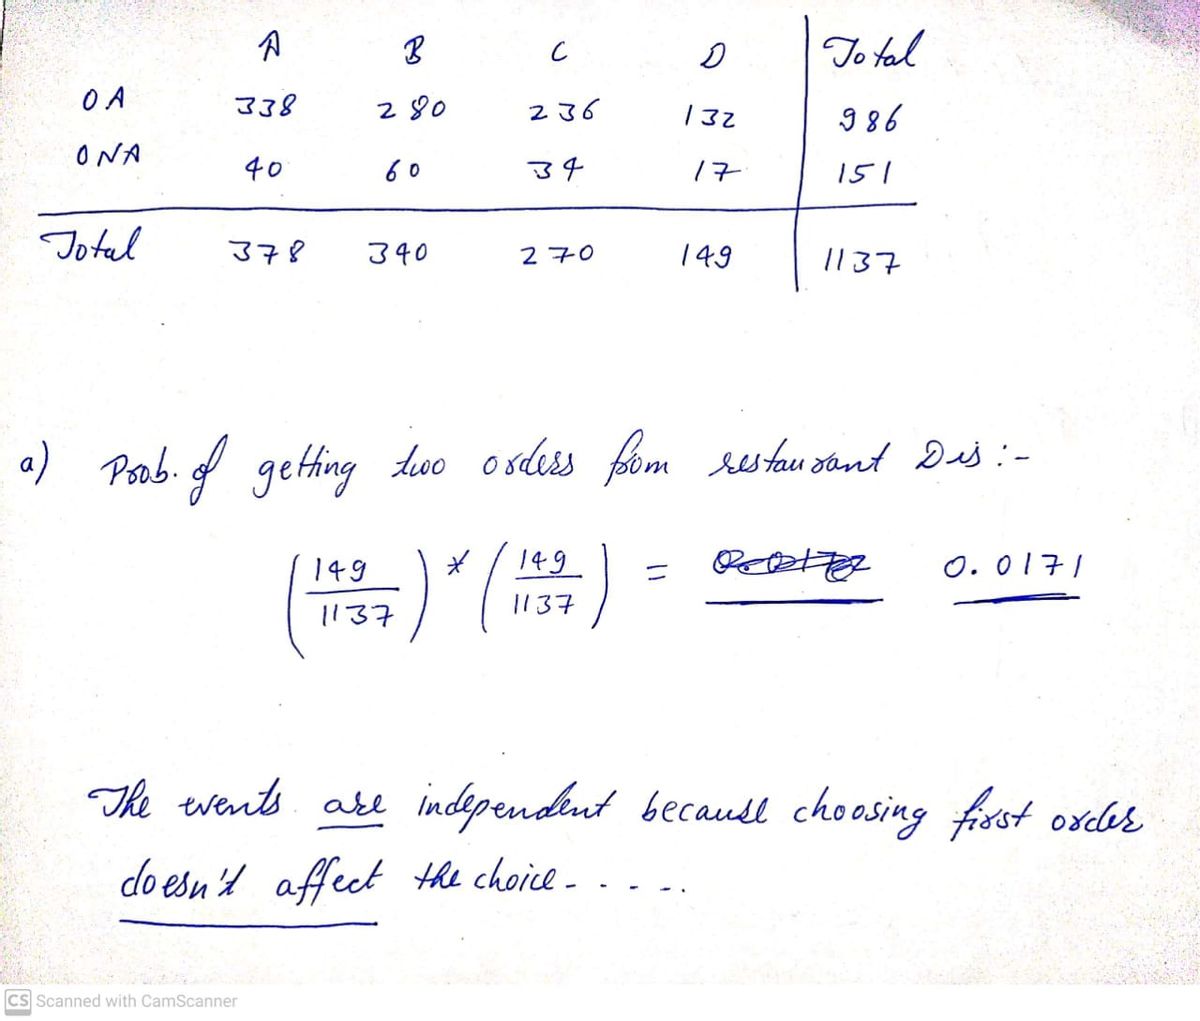 A B C D Total
OA 338 280 236 132 986
ONA 40 60 34 17 151
Total 378 340 270 149 1137
a) Prob. of getting two orders from restaurant D is :-
(149/1137) * (149/1137) = 0.0171
The events are independent because choosing first order
doesn't affect the choice - - - - -.
CS Scanned with CamScanner